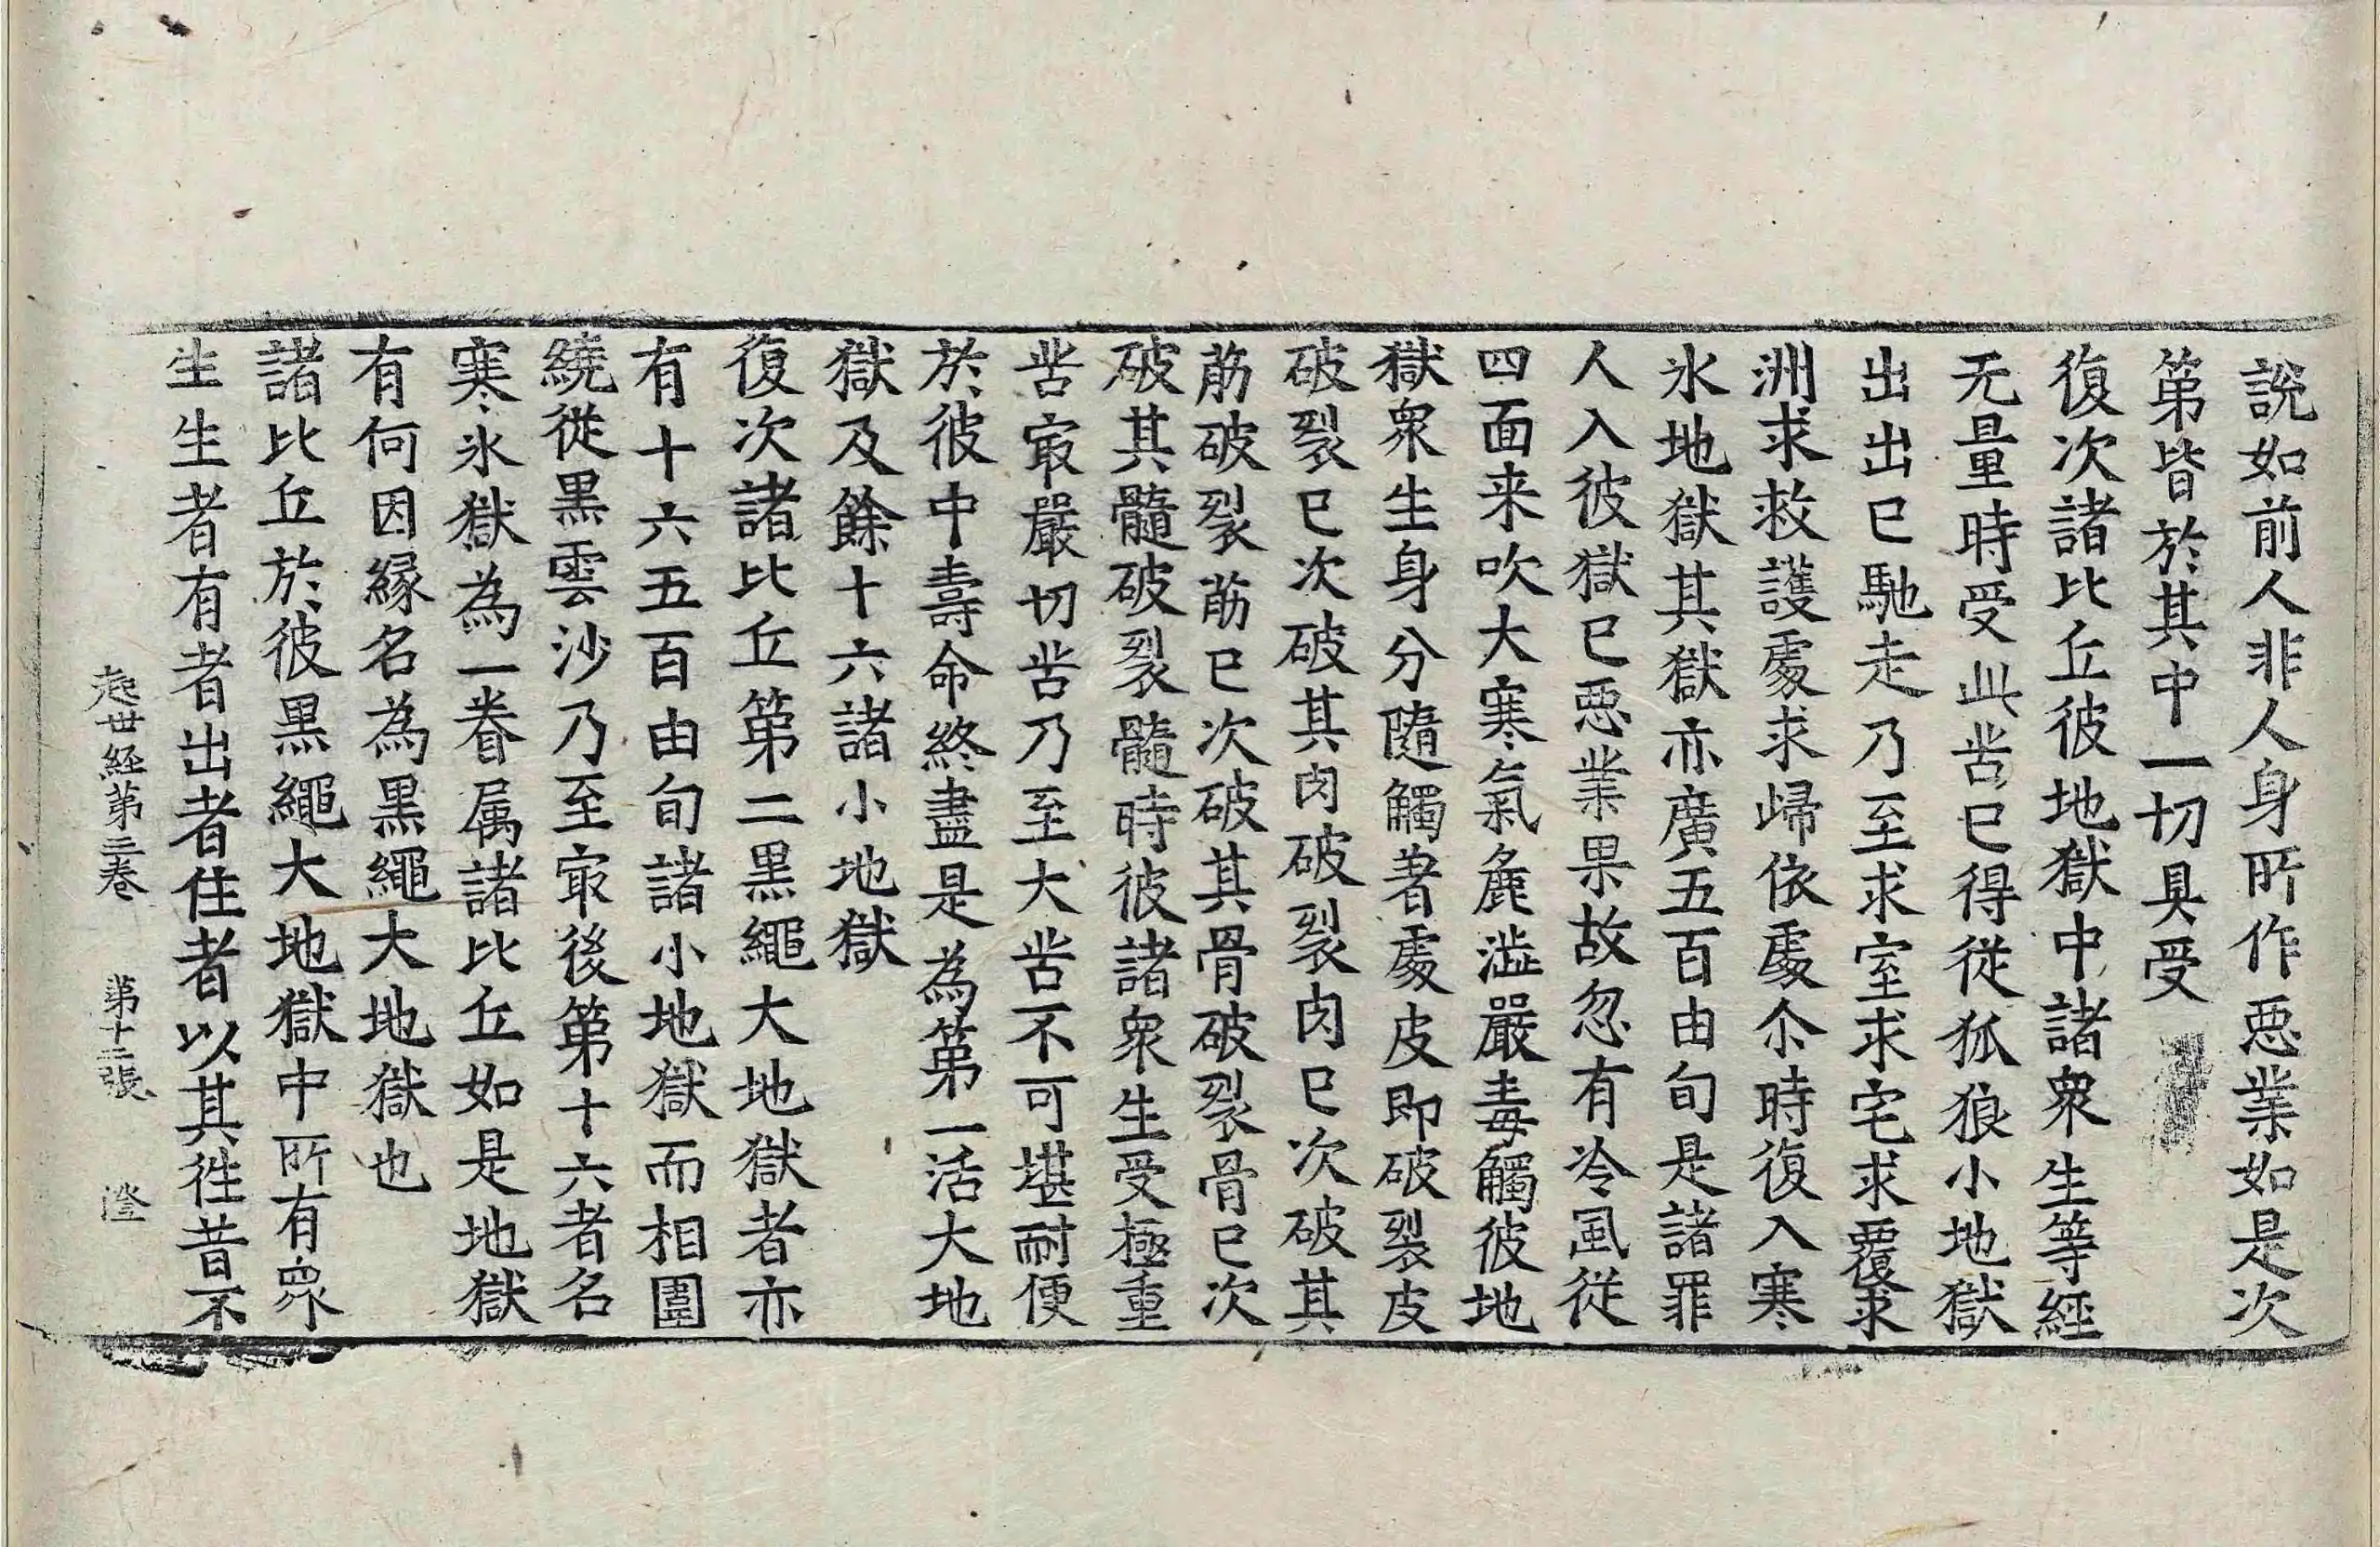 說如前人非人身所作惡業如是次
第皆於其中一切具受
復次諸比丘彼地獄中諸衆生等經
无量時受此苦已得從狐狼小地獄
出出已馳走乃至求室求宅求覆求
洲求救護處求歸依處尒時復入寒
氷地獄其獄亦廣五百由旬是諸罪
人入彼獄已惡業果故忽有冷風從
四面来吹大寒氣麁澁嚴毒觸彼地
獄衆生身分隨觸著處皮即破裂皮
破裂已次破其肉破裂肉已次破其
筋破裂筋已次破其骨破裂骨已次
破其髓破裂髓時彼諸衆生受極重
苦㝡嚴切苦乃至大苦不可堪耐便
於彼中壽命終盡是為第一活大地
獄及餘十六諸小地獄
復次諸比丘第二黒繩大地獄者亦
有十六五百由旬諸小地獄而相圍
繞從黒雲沙乃至㝡後第十六者名
寒氷獄為一眷属諸比丘如是地獄
有何因緣名為黒繩大地獄也
諸比丘於彼黒繩大地獄中所有衆
生生者有者出者住者以其徃昔不
起世經第二卷 第十二張 澄